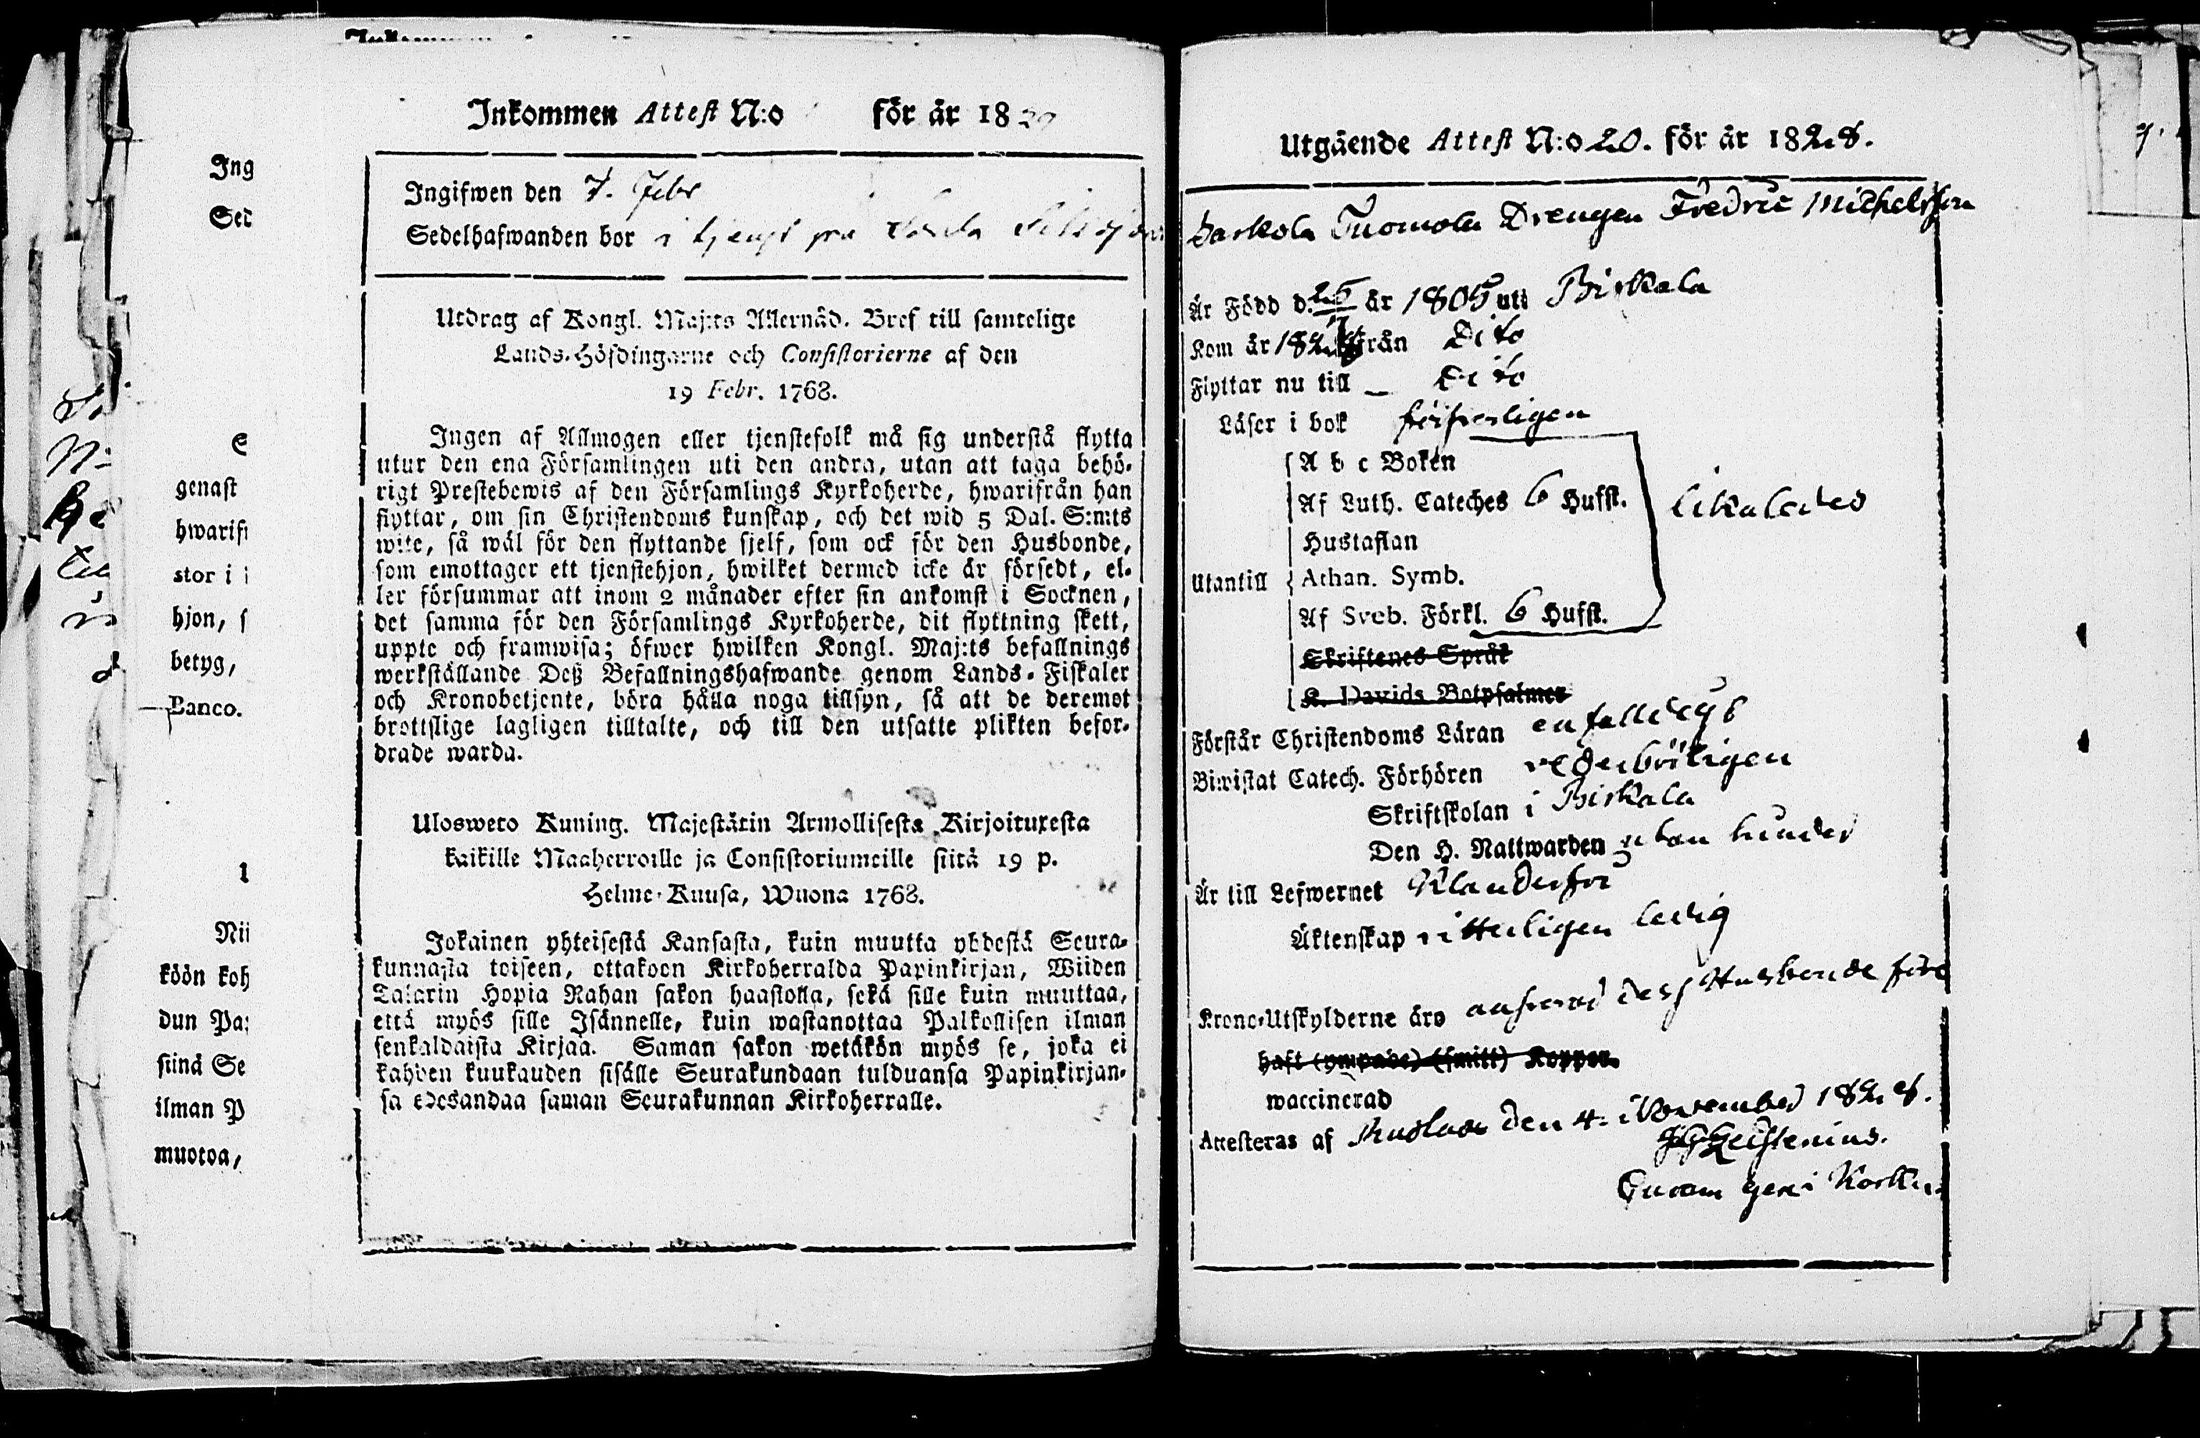 Inkommen Attest N:o för år 1829
Ingifwen den 7. Febr
Sedelhafwanden bor i tjenst på
Utdrag af Kongl. Maj:ts Allernåd. Bref till samtelige
Lands-Höfdingarne och Consistorierne af den
19 Febr. 1768.
Ingen af Allmogen eller tjenstefolk må sig understå flytta
utur den ena Församlingen uti den andra, utan att taga behö-
rigt Prestebewis af den Församlings Kyrkoherde, hwarifrån han
flyttar, om sin Christendoms kunskap, och det wid 5 Dal. S:mts
wite, så wäl för den flyttande sjelf, som ock för den Husbonde,
som emottager ett tjenstehjon, hwilket dermed icke är försedt, el-
ler försummar att inom 2 månader efter sin ankomst i Socknen,
det samma för den Församlings Kyrkoherde, dit flyttning skett,
uppte och framwisa; öfwer hwilken Kongl. Maj:ts befallnings
werkställande Deß Befallningshafwande genom Lands-Fiskaler
och Kronobetjente, böra hålla noga tillsyn, så att de deremot
brottslige lagligen tilltalte, och till den utsatte plikten befor-
drade warda.
Ulosweto Kuning. Majestätin Armollisesta Kirjoituxesta
kaikille Maaherroille ja Consistoriumeille siitä 19 p.
Helme-Kuusa, Wuona 1768.
Jokainen yhteisestä Kansasta, kuin muutta yhdestä Seura-
kunnasta toiseen, ottakoon Kirkoherralda Papinkirjan, Wiiden
Talarin Hopia Rahan sakon haastolla, sekä sille kuin muuttaa,
että myös sille Isännelle, kuin wastanottaa Palkollisen ilman
senkaldaista Kirjaa. Saman sakon wetäkön myös se, joka ei
kahden kuukauden sisälle Seurakundaan tulduansa Papinkirjan-
sa edesandaa saman Seurakunnan Kirkoherralle.
Ing
Sed
genast
hwarifr
stor i
hjon, s
betyg,
Banco.
Nii
köön koh
dun Pa
siinä Se
ilman P
muotoa,
Utgående Attest N:o 20. för år 1828.
Sarkola Tuomola Drengen Fredric Michelsson
Är Född d. 25 år 1805 uti Birkala
Kom år 182 från Dito
Flyttar nu till – Dito
Läser i bok försvarligen
A b c Boken
Af Luth. Cateches 6 Hufst. likaledes
Hustaflan
Utantill Athan. Symb.
Af Sveb. Förkl. 6 Hufst.
Skriftenes Språk
K. Davids Botpsalmer
Förstår Christendoms Läran enfalldigt
Biwistat Catech. Förhören vederbörligen
Skriftskolan i Birkala
Den H. Nattwarden utan hinder
Är till Lefwernet oklanderfri
Äktenskap witterligen ledig
Krono-Utskylderne äro answarar dess Husbonde före
haft (ympade) (smitt) Koppor.
waccinerad
Attesteras af Mustasaari den 4. November 1828.